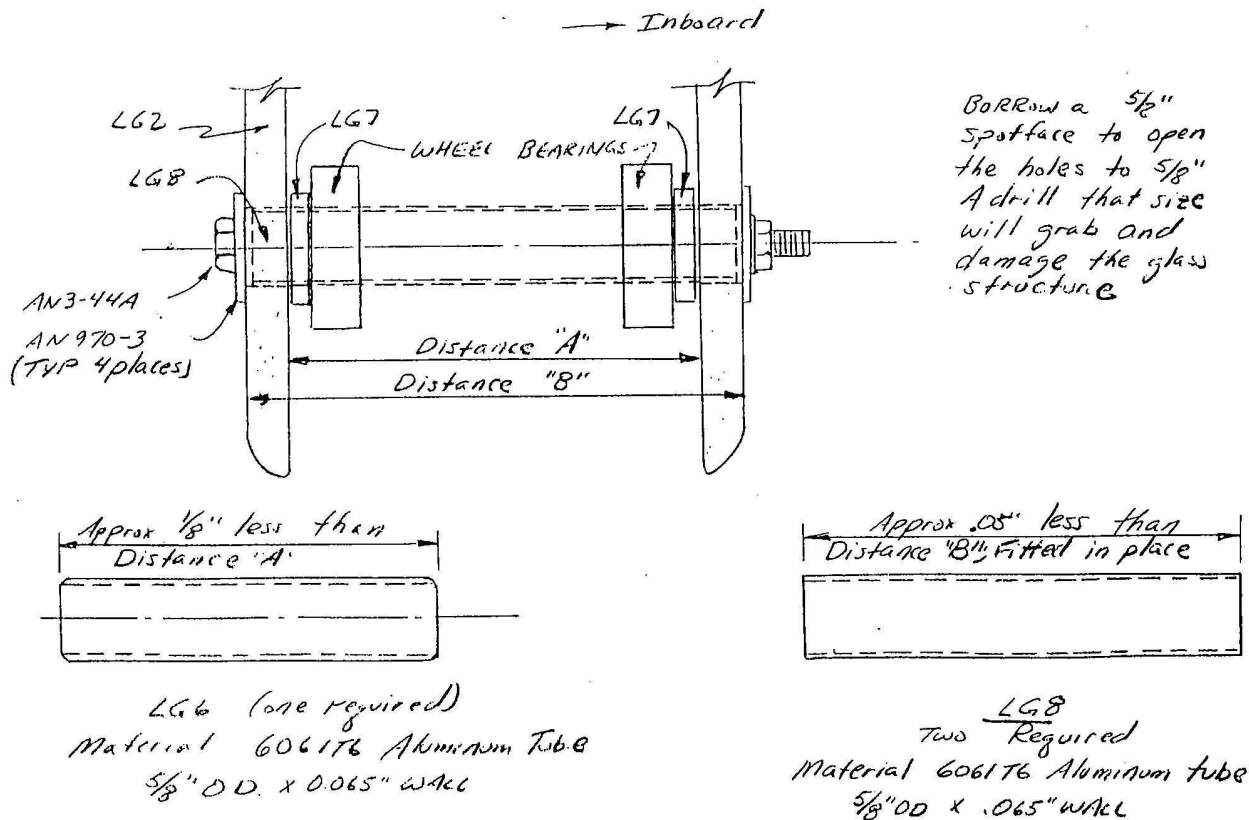 Inboard
LG2
LG7
LG7
WHEEL BEARINGS
LG8
AN3-44A
AN970-3
(TYP 4places)
Distance "A"
Distance "B"
BORROW a 5/8"
spotface to open
the holes to 5/8"
A drill that size
will grab and
damage the glass
structure
Approx 1/8" less than
Distance "A"
LG6 (one required)
Material 6061T6 Aluminum Tube
5/8" OD. x 0.065" WALL
Approx .05" less than
Distance "B", Fitted in place
LG8
Two Required
Material 6061T6 Aluminum tube
5/8" OD x .065" WALL